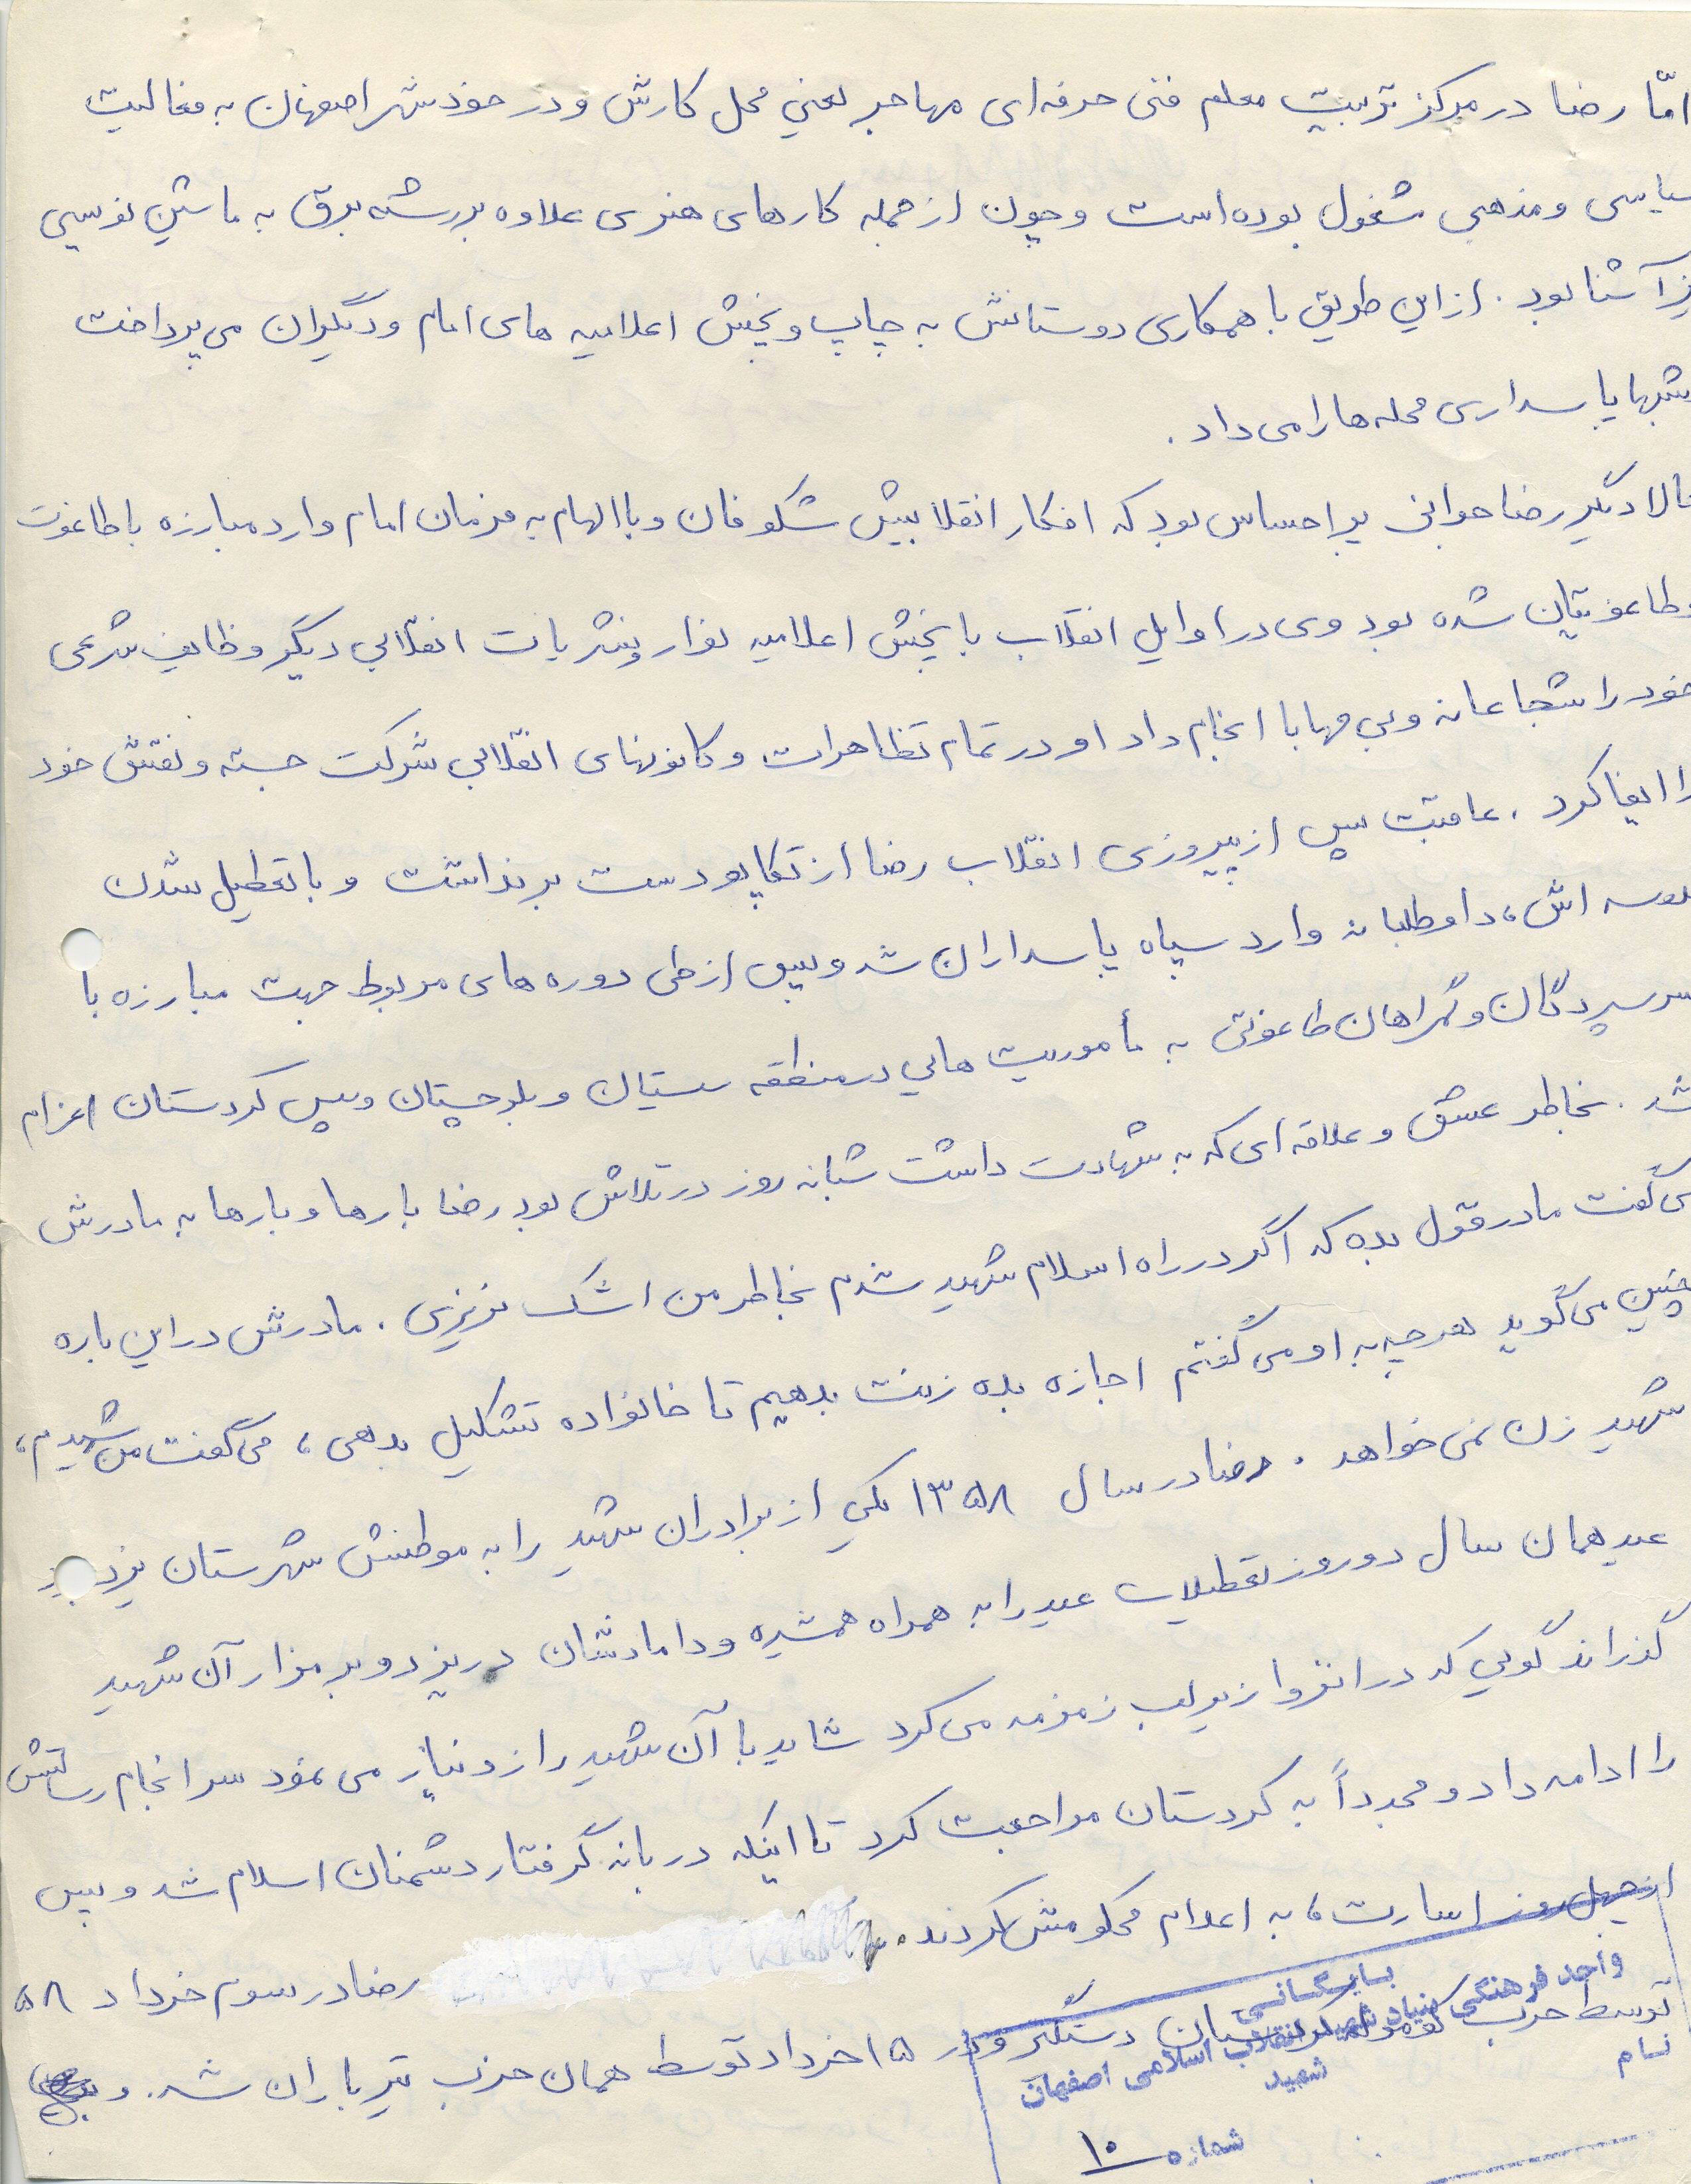 امّا رضا در مرکز تربیت معلم فنی حرفه‌ای مهاجر یعنی محل کارش و در خود شهر اصفهان به فعالیت
سیاسی و مذهبی مشغول بوده است و چون از جمله کارهای هنری علاوه بر رشته برق به ماشین نویسی
نیز آشنا بود. از این طریق با همکاری دوستانش به چاپ و پخش اعلامیه های امام و دیگران می پرداخت
شبها پاسداری محله ها را می داد.
حالا دیگر رضا جوانی پر احساس بود که افکار انقلابیش شکوفان و با الهام به فرمان امام وارد مبارزه با طاغوت
و طاغوتیان شده بود وی در اوایل انقلاب با پخش اعلامیه نوار و نشریات انقلابی دیگر وظایف شرعی
خود را شجاعانه و بی مهابا انجام داد او در تمام تظاهرات و کانونهای انقلابی شرکت جسته و نقش خود
را ایفا کرد. عاقبت پس از پیروزی انقلاب رضا از تکاپو دست برنداشت و با تعطیل شدن
مدرسه اش، داوطلبانه وارد سپاه پاسداران شد و پس از طی دوره های مربوط جهت مبارزه با
سرسپردگان و گمراهان طاغوتی به مأموریت هایی در منطقه سیستان و بلوچستان و سپس کردستان اعزام
شد. بخاطر عشق و علاقه ای که به شهادت داشت شبانه روز در تلاش بود رضا بارها و بارها به مادرش
می گفت مادر قول بده که اگر در راه اسلام شهید شدم بخاطر من اشک نریزی. مادرش در این باره
چنین می گوید هر چه به او می گفتم اجازه بده زنت بدهیم تا خانواده تشکیل بدهی، می گفت من شهیدم،
شهید زن نمی خواهد. رضا در سال ۱۳۵۸ یکی از برادران شهید را به موطنش شهرستان یزد
عید همان سال دو روز تعطیلات عید را به همراه همشیره و دامادشان در یزد و بر مزار آن شهید
گذراند گویی که در انزوا زیر لب زمزمه می کرد شاید با آن شهید راز و نیاز می نمود سرانجام رسالتش
را ادامه داد و مجدداً به کردستان مراجعت کرد تا اینکه در بانه گرفتار دشمنان اسلام شد و پس
از چهل روز اسارت، به اعدام محکومش کردند. رضا در سوم خرداد ۵۸
توسط حزب کومله کردستان دستگیر و در ۱۵ خرداد توسط همان حزب تیرباران شد. و
بایگانی
واحد فرهنگی بنیاد شهید انقلاب اسلامی اصفهان
نام شهید
شماره ۱۰